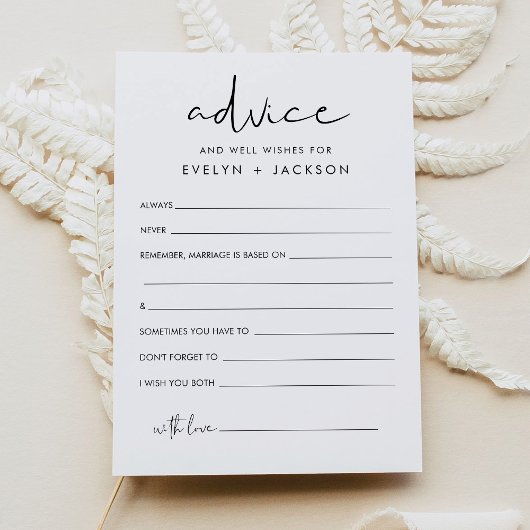 advice
AND WELL WISHES FOR
EVELYN + JACKSON
ALWAYS
NEVER
REMEMBER, MARRIAGE IS BASED ON
&
SOMETIMES YOU HAVE TO
DON'T FORGET TO
I WISH YOU BOTH
with love